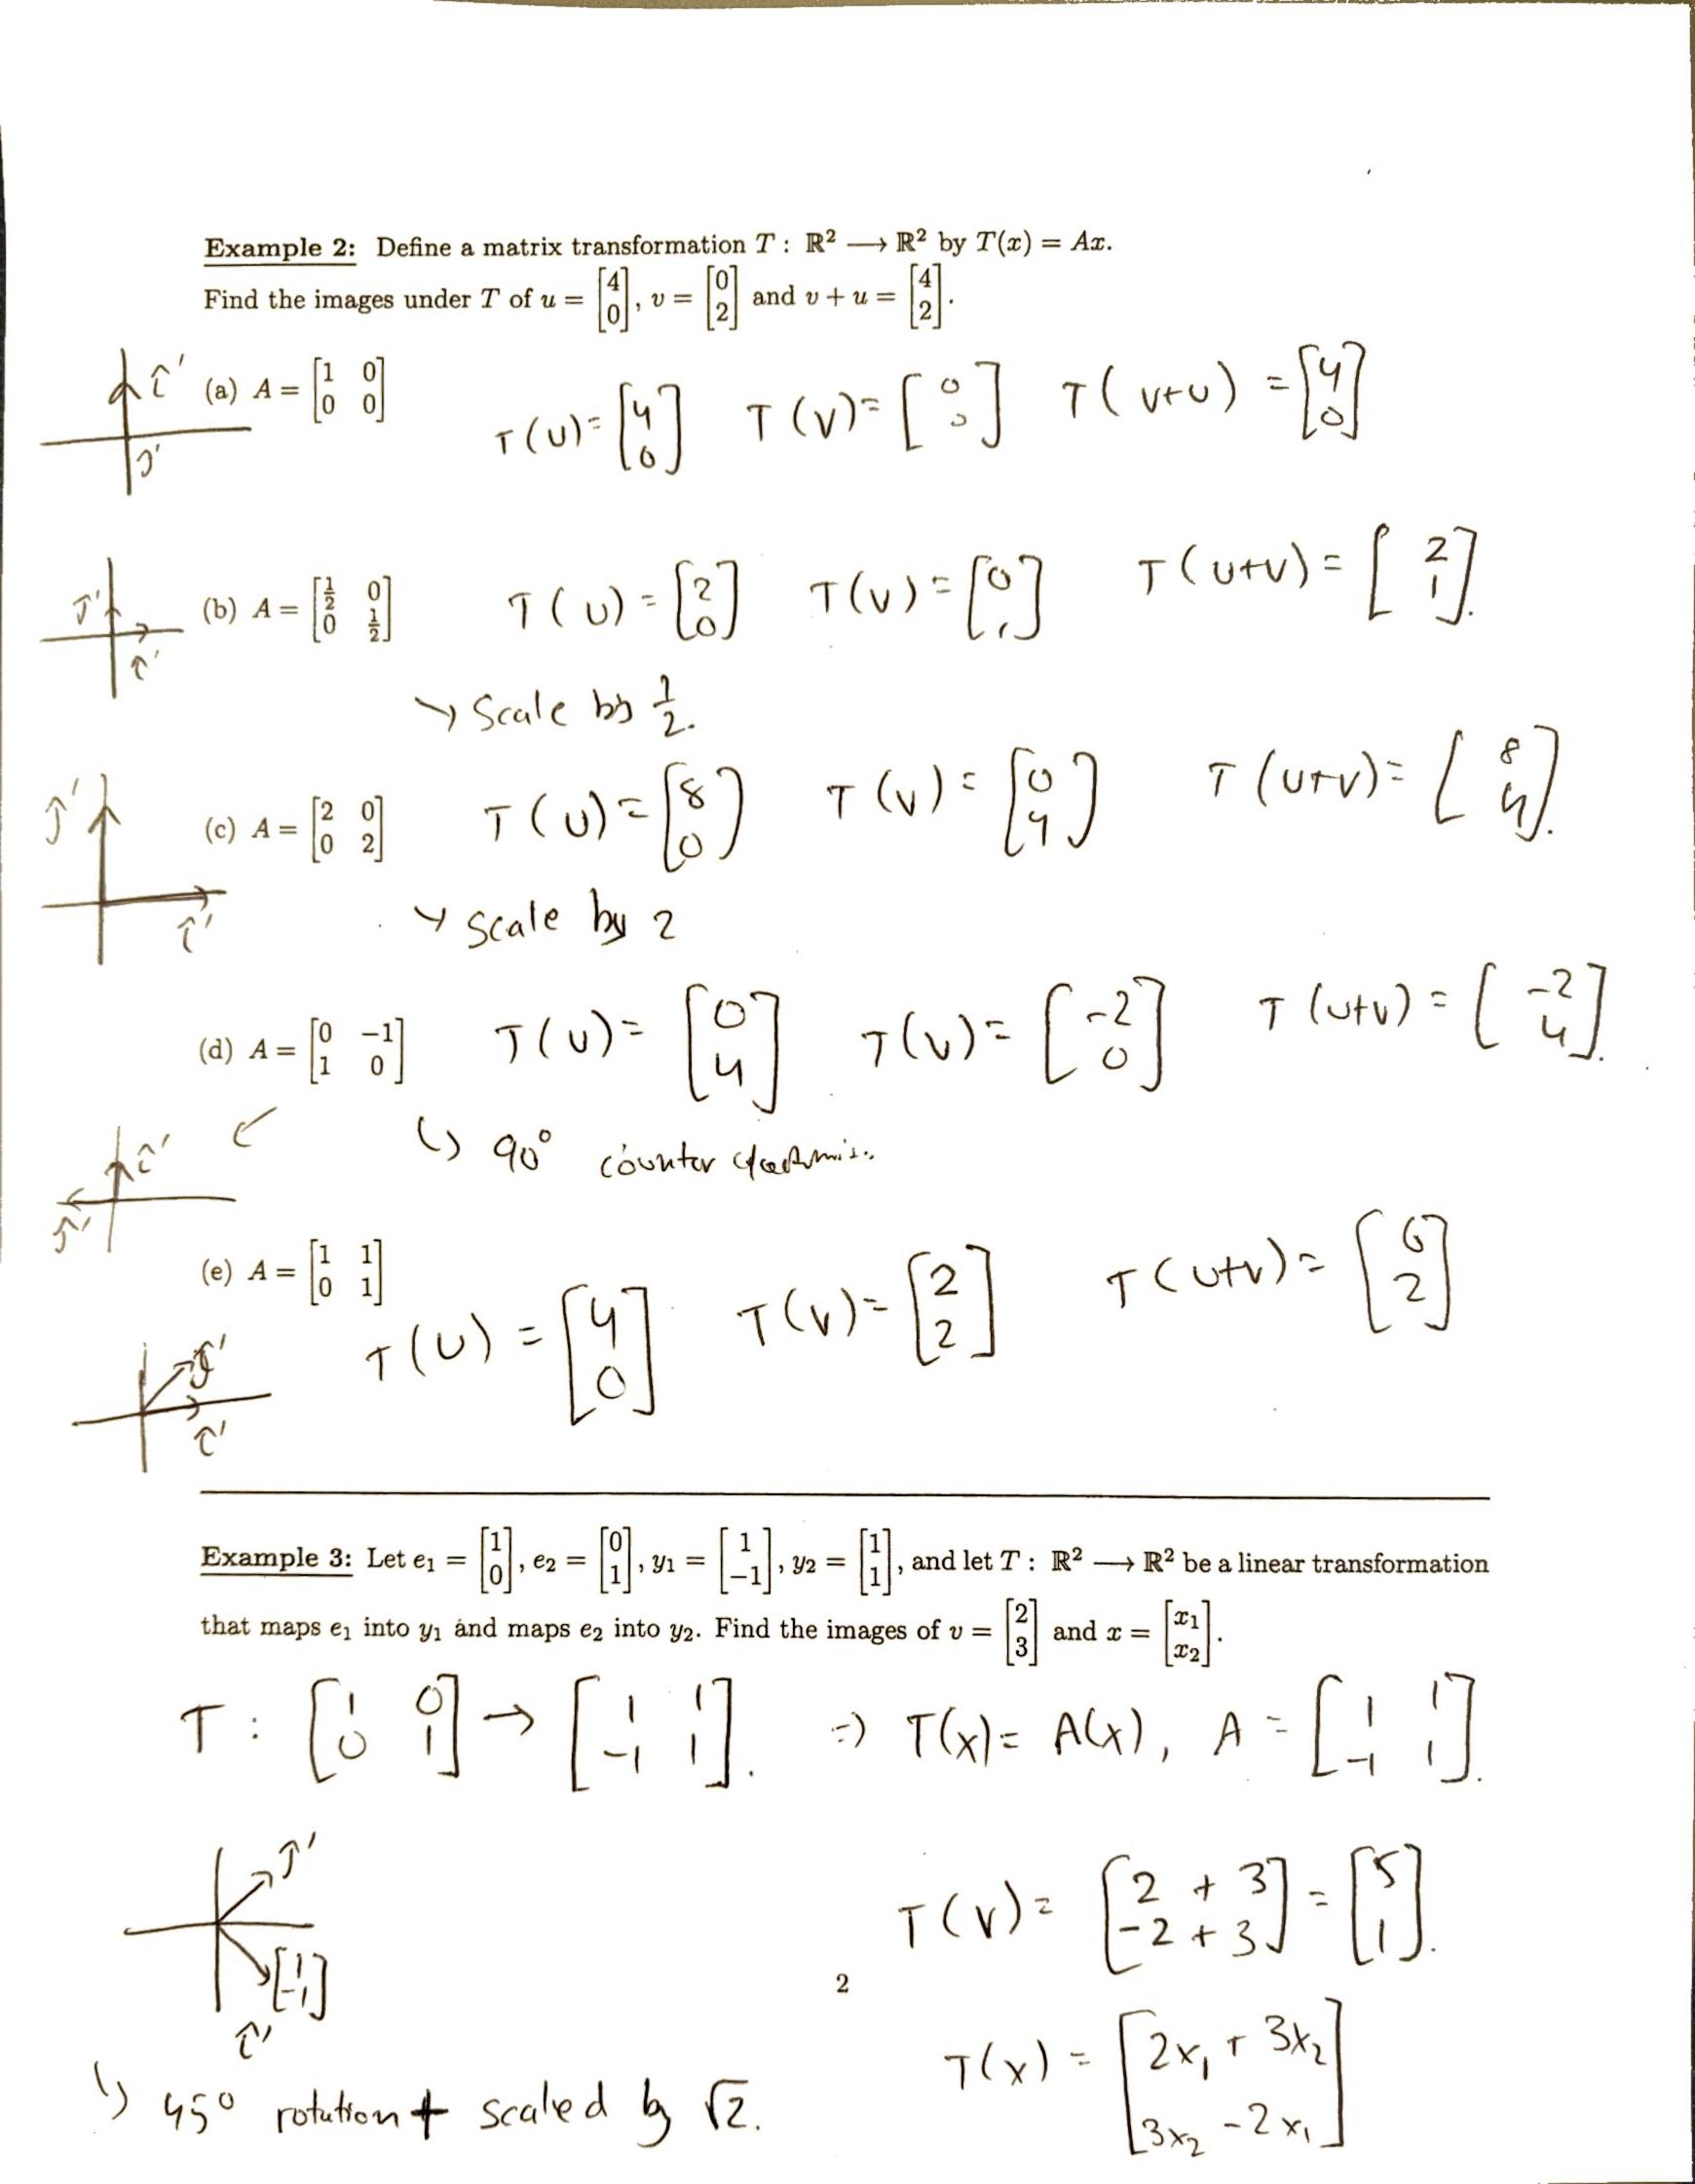 Example 2: Define a matrix transformation T : ℝ² ⟶ ℝ² by T(x) = Ax.
Find the images under T of u = [4 0], v = [0 2] and v + u = [4 2].
î' (a) A = [1 0; 0 0] T(U) = [4 0] T(V) = [0 0] T(V+U) = [4 0]
ĵ'
ĵ' (b) A = [1/2 0; 0 1/2] T(U) = [2 0] T(V) = [0 1] T(U+V) = [2 1].
î'
↳ Scale by 1/2.
ĵ' (c) A = [2 0; 0 2] T(U) = [8 0] T(V) = [0 4] T(U+V) = [8 4].
î'
↳ scale by 2
(d) A = [0 −1; 1 0] T(U) = [0 4] T(V) = [-2 0] T(U+V) = [-2 4].
î' ↳ 90° counter
ĵ'
(e) A = [1 1; 0 1] T(U) = [4 0] T(V) = [2 2] T(U+V) = [6 2]
ĵ'
î'
Example 3: Let e₁ = [1 0], e₂ = [0 1], y₁ = [1 −1], y₂ = [1 1], and let T : ℝ² ⟶ ℝ² be a linear transformation
that maps e₁ into y₁ and maps e₂ into y₂. Find the images of v = [2 3] and x = [x₁ x₂].
T : [1 0; 0 1] → [1 1; -1 1]. ⇒ T(x) = A(x), A = [1 1; -1 1].
ĵ'
T(V) = [2 + 3; -2 + 3] = [5 1].
[1 -1]
î'
2
T(x) = [2x₁ + 3x₂; 3x₂ - 2x₁]
↳ 45° rotation + scaled by √2.